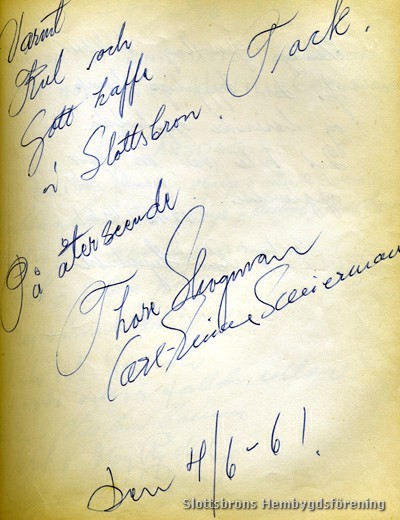 Varmt
Kul och
Gott kaffe
i Slottsbron. Tack.
På återseende
Thore Skogman
Carl-
Den 4/6-61.
Slottsbrons Hembygdsförening